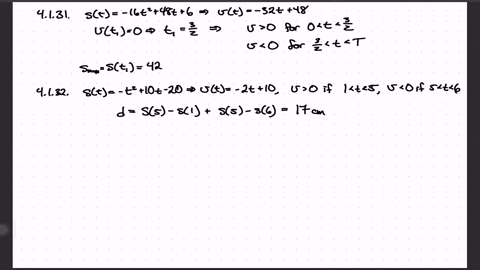 4.1.31. s(t)=-16t²+48t+6 ⇒ v(t)=-32t+48
v(t₁)=0 ⇒ t₁=3/2 ⇒ v>0 for 0<t<3/2
v<0 for 3/2<t<T
sₘₐₓ=s(t₁)=42
4.1.32. s(t)=-t²+10t-20 ⇒ v(t)=-2t+10, v>0 if 1<t<5, v<0 if 5<t<6
d = s(5)-s(1) + s(5)-s(6) = 17 cm